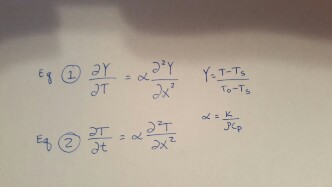 Eq ① ∂Y/∂T = α ∂²Y/∂x² Y = T-Ts/To-Ts
α = K/ρCp
Eq ② ∂T/∂t = α ∂²T/∂x²